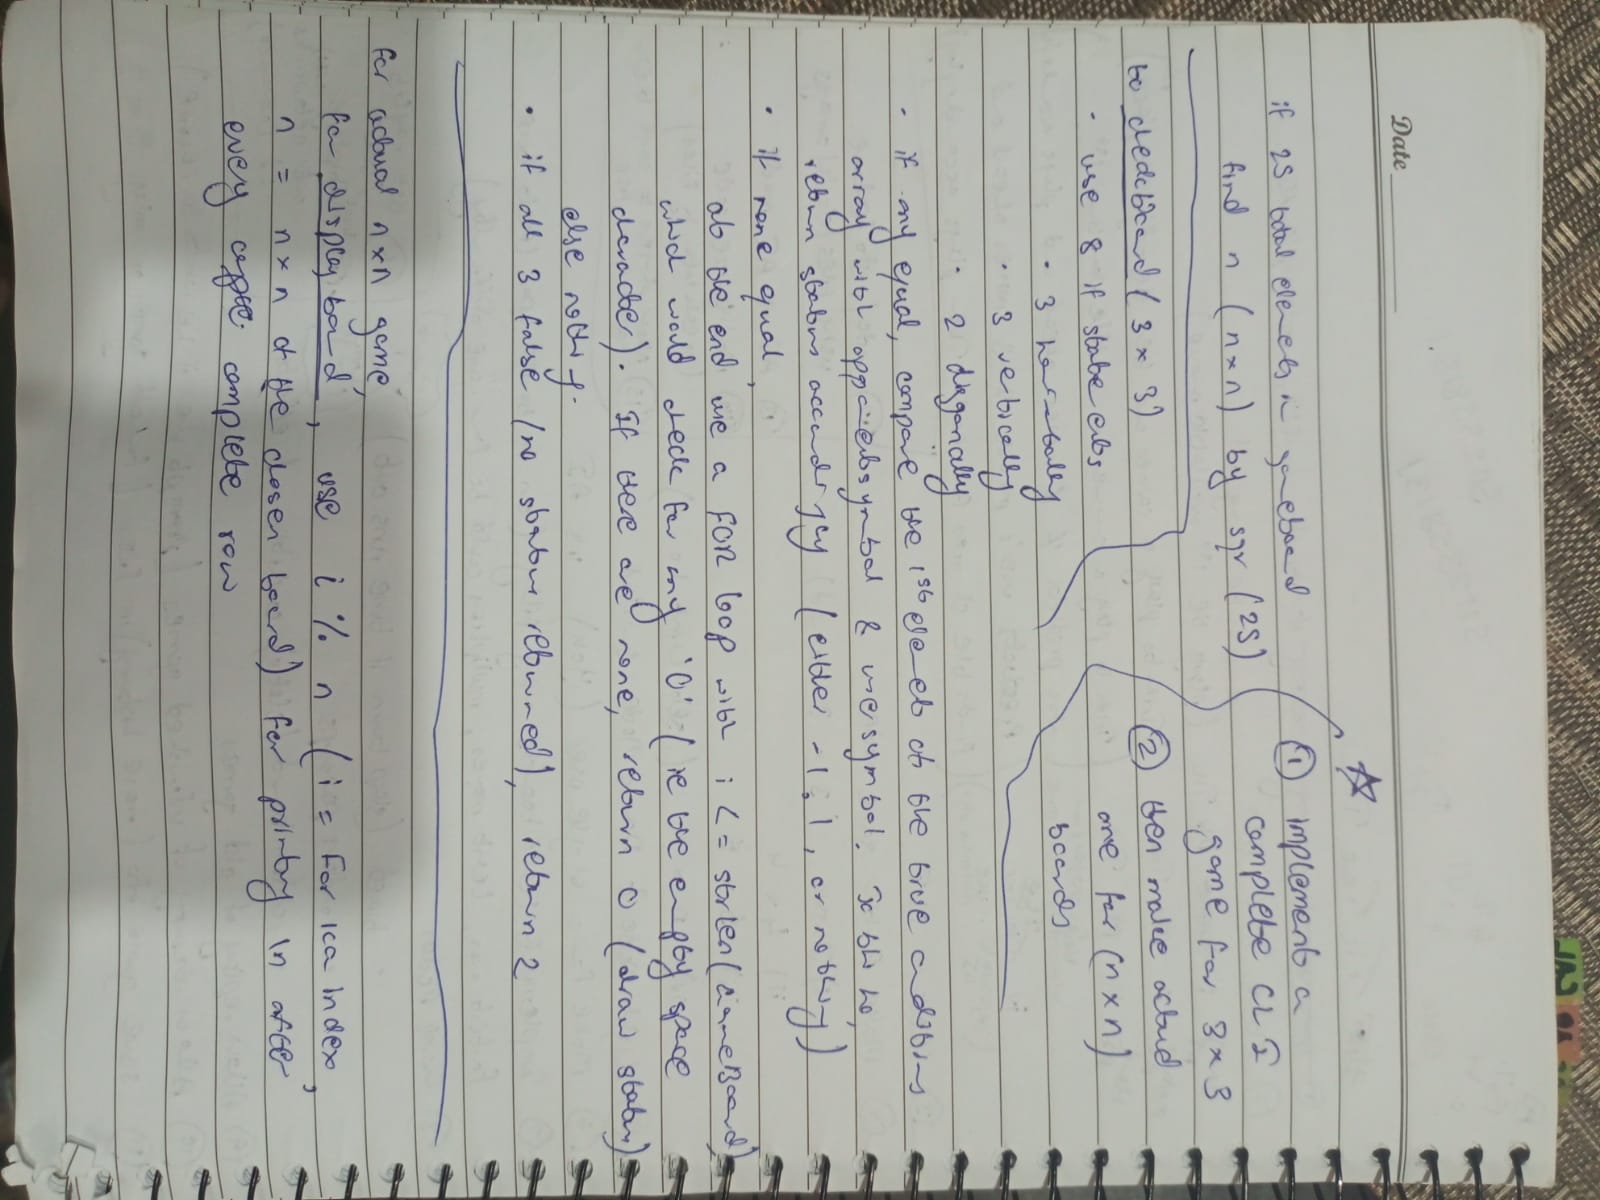 Date
if 25 total elements in gameboard
find n (n×n) by sqr (25)
☆
① implement a
complete CLI
game for 3×3
② then make actual
one for (n×n)
boards
to checkBoard (3×3)
· use 8 if statements
· 3 horizontally
· 3 vertically
· 2 diagonally
· if any equal, compare the 1st element of the true conditions
array with opponentsymbol & usersymbol. If
return status accordingly (either -1, 1, or nothing)
· if none equal,
at the end use a for loop with i <= strlen(gameBoard)
which would check for any '0' (ie the empty space
character). If there are none, return 0 (draw status)
else nothing.
· if all 3 false (no status returned), return 2
for actual n×n game,
for display board, use i % n (i = for loop index,
n = n×n of the chosen board) for printing \n after
every complete row